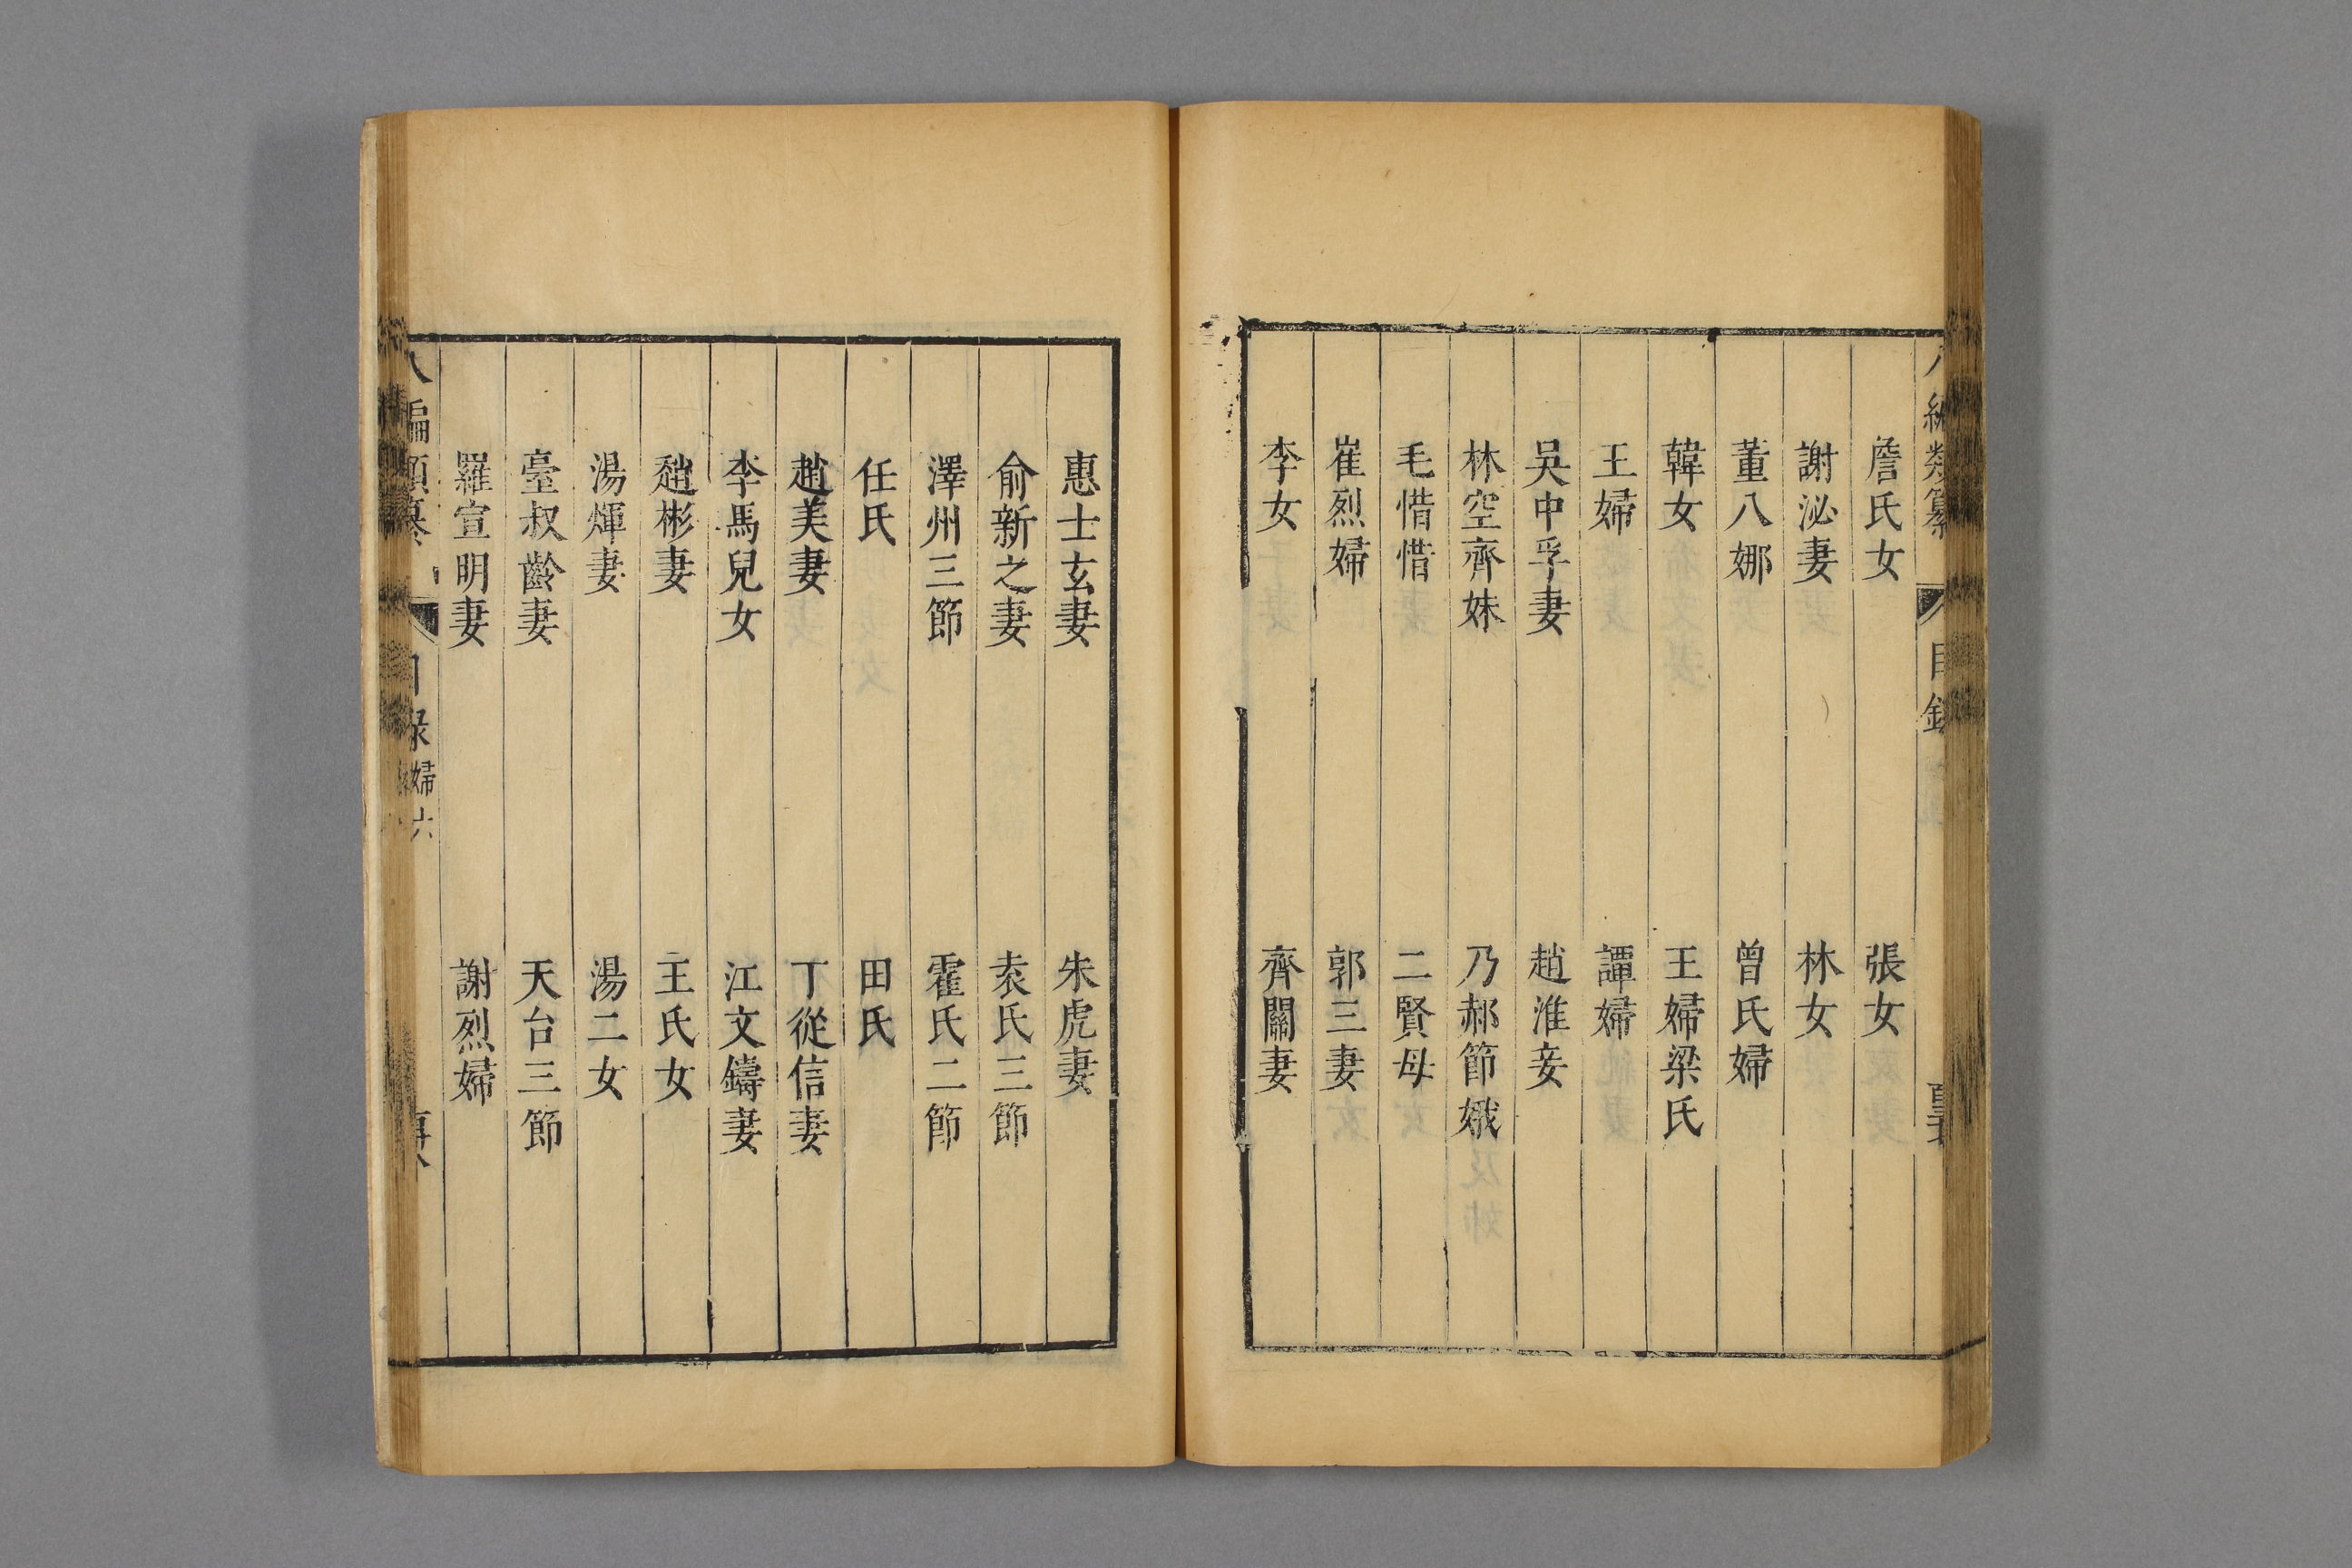 詹氏女　張女
謝泌妻　林女
董八娜　曾氏婦
韓女　王婦梁氏
王婦　譚婦
吳中孚妻　趙淮妾
林空齊妹　乃郝節娥
毛惜惜　二賢母
崔烈婦　郭三妻
李女　齊關妻
惠士玄妻　朱虎妻
俞新之妻　袁氏三節
澤州三節　霍氏二節
任氏　田氏
趙美妻　丁從信妻
李馬兒女　江文鑄妻
趙彬妻　王氏女
湯煇妻　湯二女
臺叔齡妻　天台三節
羅宣明妻　謝烈婦
八編類纂　目錄　婦六